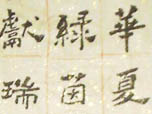 華夏
綠茵
獻瑞